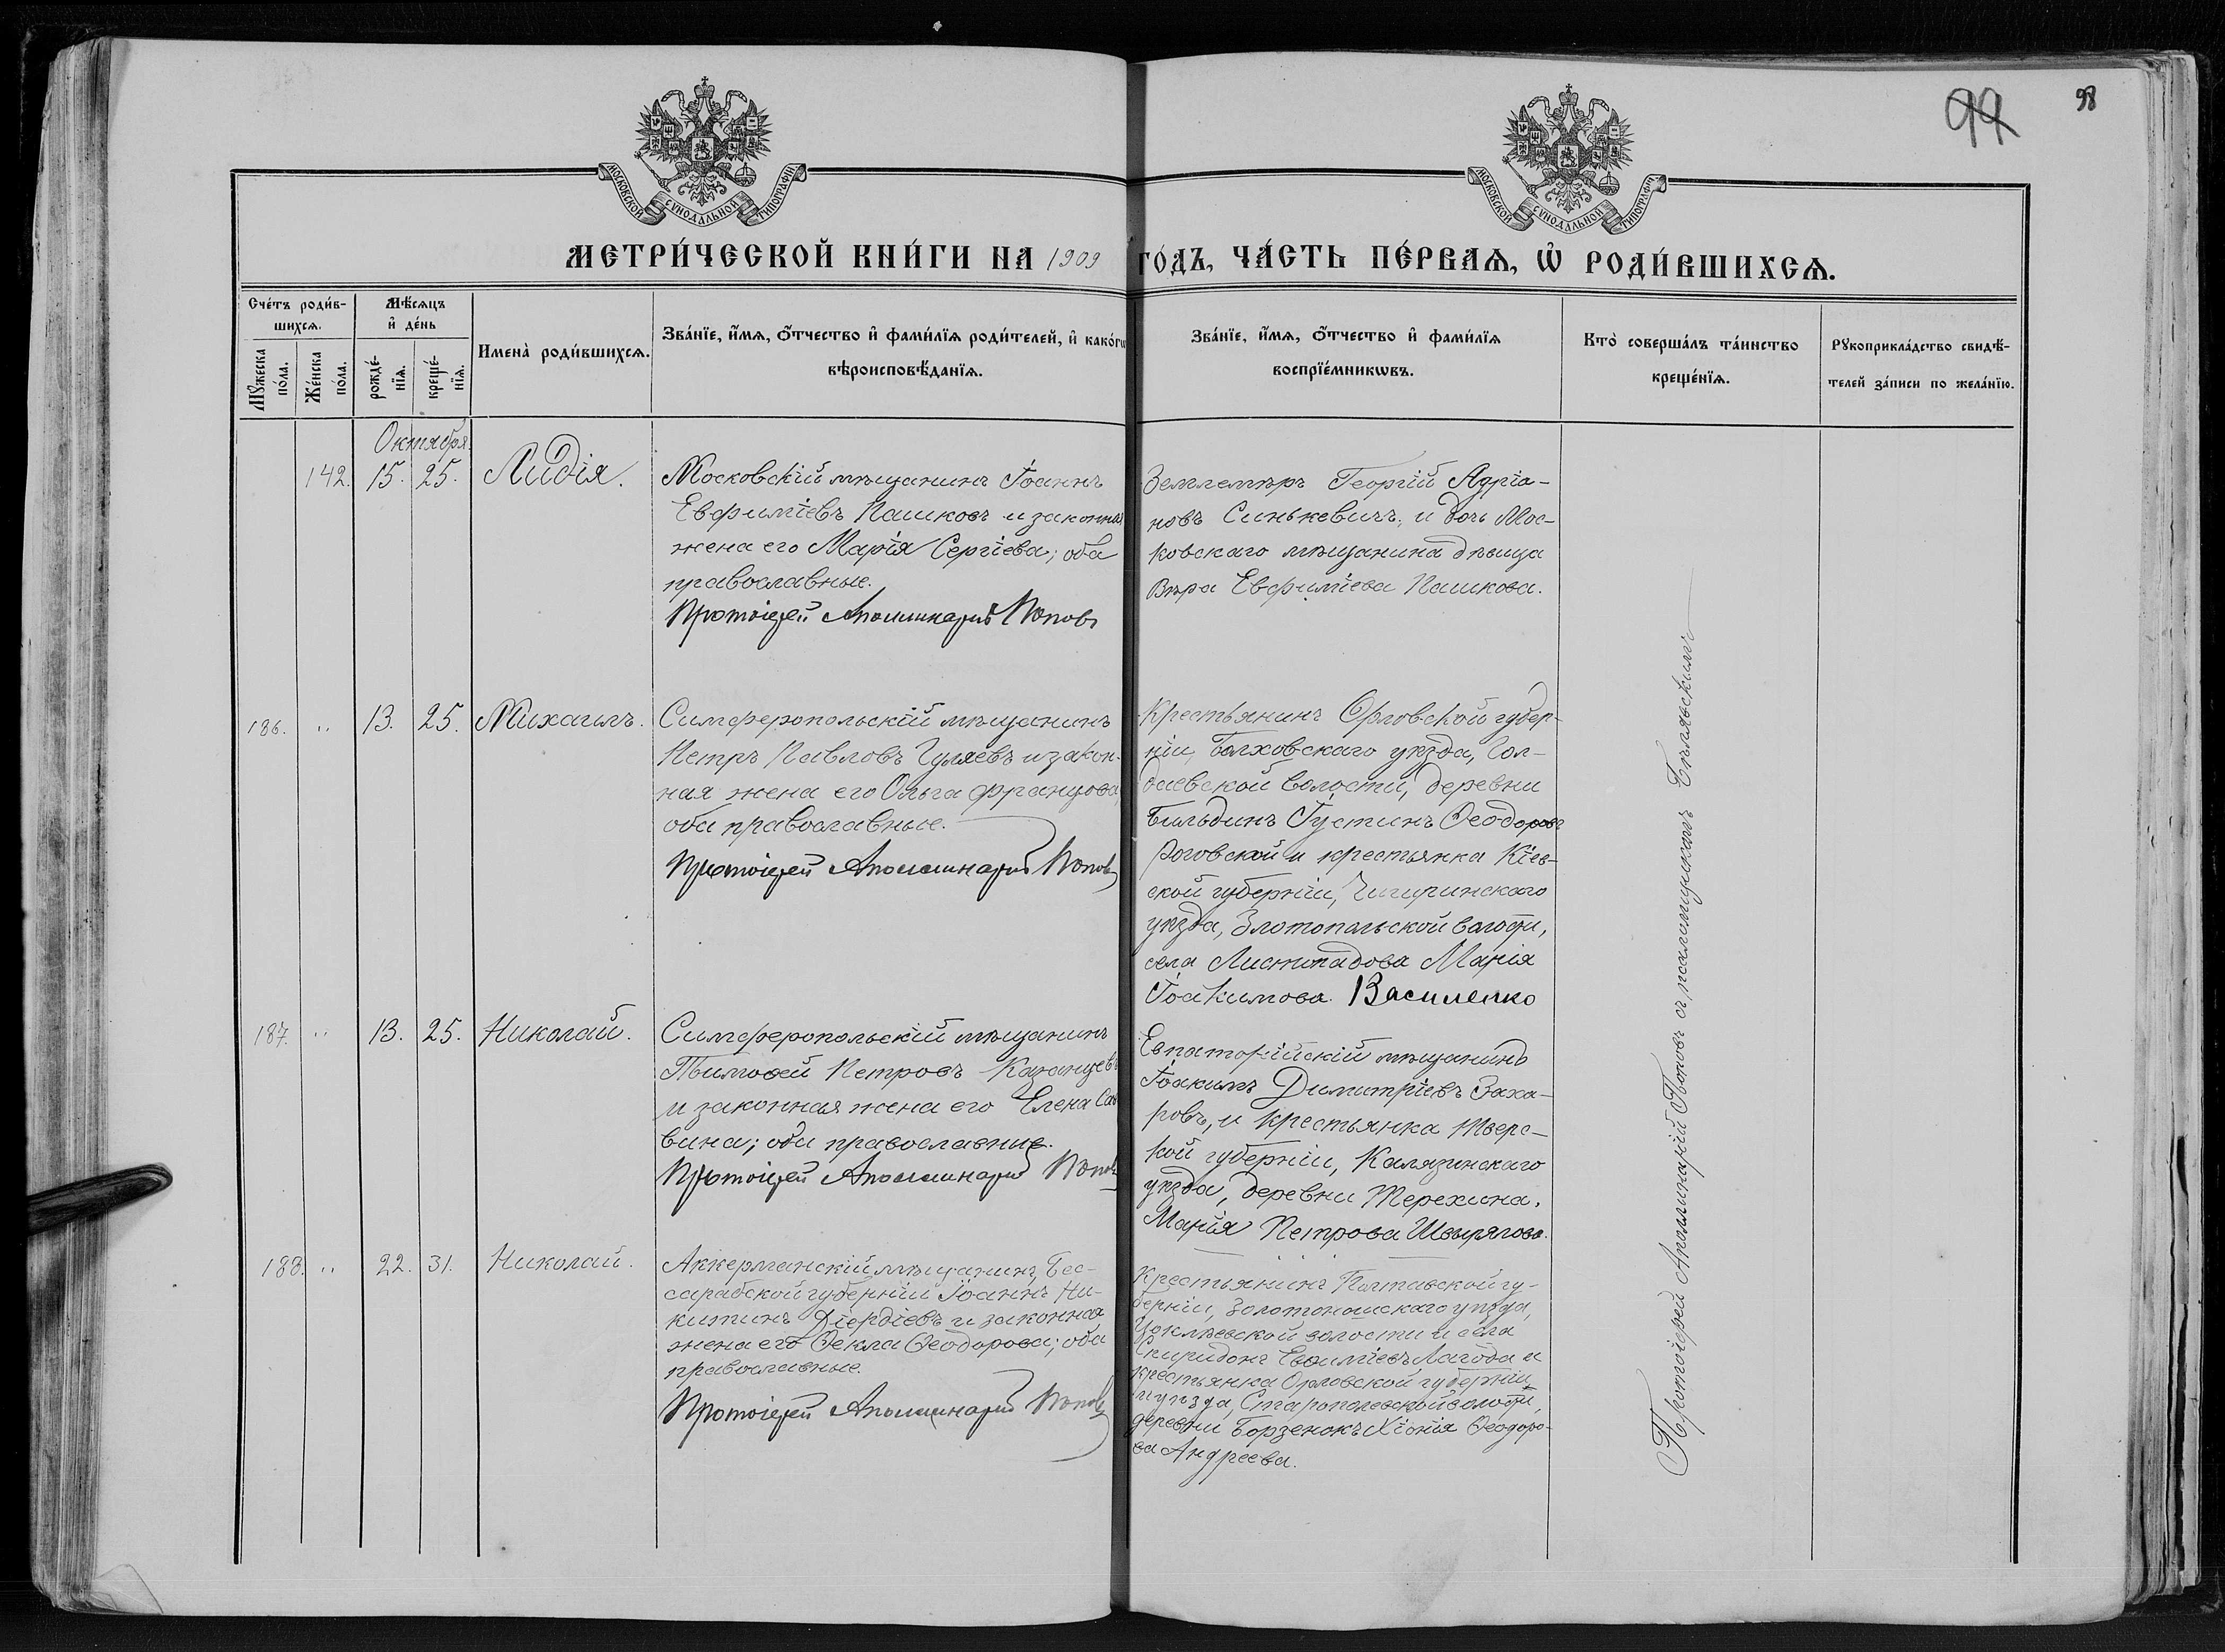 99
98
МОСКОВСКОЙ СѴНОДАЛЬНОЙ ТИПОГРАФІИ
МОСКОВСКОЙ СѴНОДАЛЬНОЙ ТИПОГРАФІИ
МЕТРИ́ЧЕСКОЙ КНИ́ГИ НА 1909 ГО́ДЪ, ЧА́СТЬ ПЕ́РВАѦ, Ѡ҆ РОДИ́ВШИХСѦ.
Сче́тъ роди́в-
шихсѧ.
Мѣ́сѧцъ
и҆ де́нь
Мꙋ́жеска
по́ла.
Же́нска
по́ла.
рожде́-
нїѧ.
креще́-
нїѧ.
Имена̀ роди́вшихсѧ.
Зва́нїе, и҆́мѧ, ѻ҆́тчество и҆ фами́лїѧ роди́телей, и҆ како́гѡ
вѣроисповѣ́данїѧ.
Зва́нїе, и҆́мѧ, ѻ҆́тчество и҆ фами́лїѧ
воспрїе́мникѡвъ.
Кто̀ соверша́лъ та́инство
креще́нїѧ.
Рꙋкоприкла́дство свидѣ́-
телей за́писи по жела́нїю.
Октября.
142. 15. 25. Лидія.
Московскій мѣщанинъ Іоаннъ
Евфиміевъ Пашковъ и законная
жена его Марія Сергіева; оба
православные.
Протоіерей Аполлинарій Поповъ
Землемѣръ Георгій Адріа-
новъ Синькевичъ, и дочь Мос-
ковскаго мѣщанина дѣвица
Вѣра Евфиміева Пашкова.
186. " 13. 25. Михаилъ.
Симферопольскій мѣщанинъ
Петръ Павловъ Гуляевъ и закон-
ная жена его Ольга Францова,
оба православные.
Протоіерей Аполлинарій Поповъ
Крестьянинъ Орловской губер-
ніи, Болховскаго уѣзда, Гол-
даевской волости, деревни
Бильдинъ Іустинъ Ѳеодоровъ
Роговской и крестьянка Кіев-
ской губерніи, Чигиринскаго
уѣзда, Златопольской волости,
села Листопадова Марія
Іоакимова Василенко
187. " 13. 25. Николай.
Симферопольскій мѣщанинъ
Тимоѳей Петровъ Казанцевъ
и законная жена его Елена Сав
вина; оба православные.
Протоіерей Аполлинарій Поповъ
Евпаторійскій мѣщанинъ
Іоакимъ Димитріевъ Заха-
ровъ, и крестьянка Твер-
кой губерніи, Калязинскаго
уѣзда, деревни Терехина,
Марія Петрова Швырялова.
188. " 22. 31. Николай.
Аккерманскій мѣщанинъ, Бес-
сарабской губерніи Іоаннъ Ни-
китинъ Діердіевъ и законная
жена его Ѳекла Ѳеодорова; оба
православные.
Протоіерей Аполлинарій Поповъ
Крестьянинъ Полтавской гу-
берніи, Золотоношскаго уѣзда,
волости и села
Спиридонъ Евѳиміевъ Лагода и
крестьянка Орловской губерніи
и уѣзда, Старополевской волости,
деревни Борзенокъ Хіонія Ѳеодоро-
ва Андреева.
Протоіерей Аполлинарій Поповъ съ псаломщикомъ Бѣлявскимъ